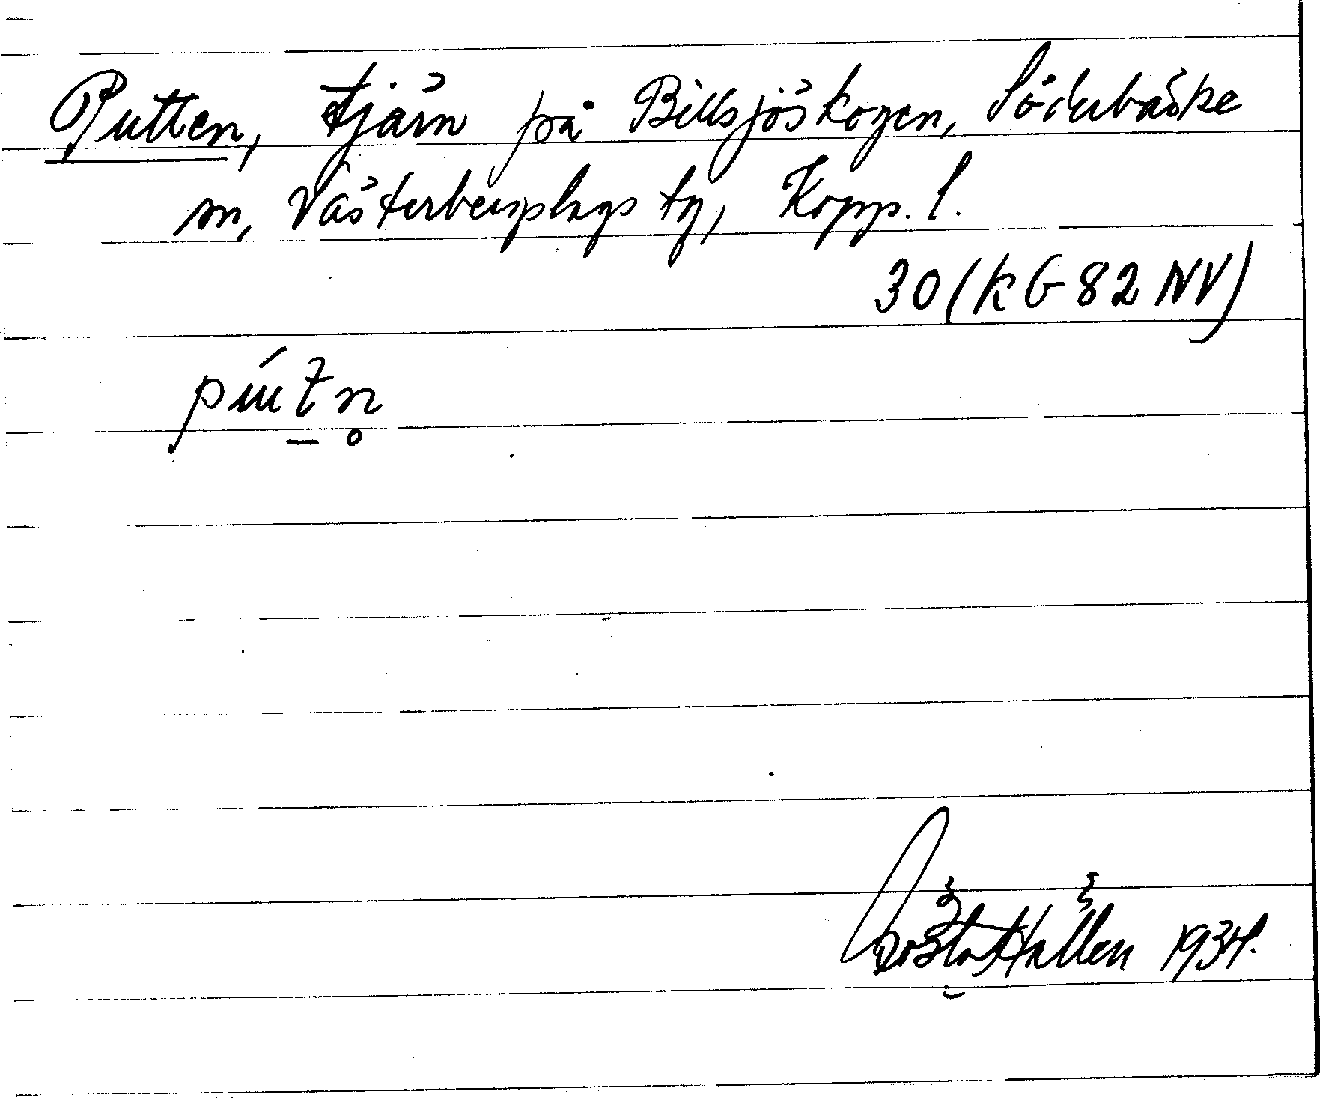 Putten, tjärn på Billsjöskogen, Söderbärke
sn, Västerbergslags tg, Kopp. l.
30 (kG 82 NV)
pút̠n̥
Gösta Hallén 1934.